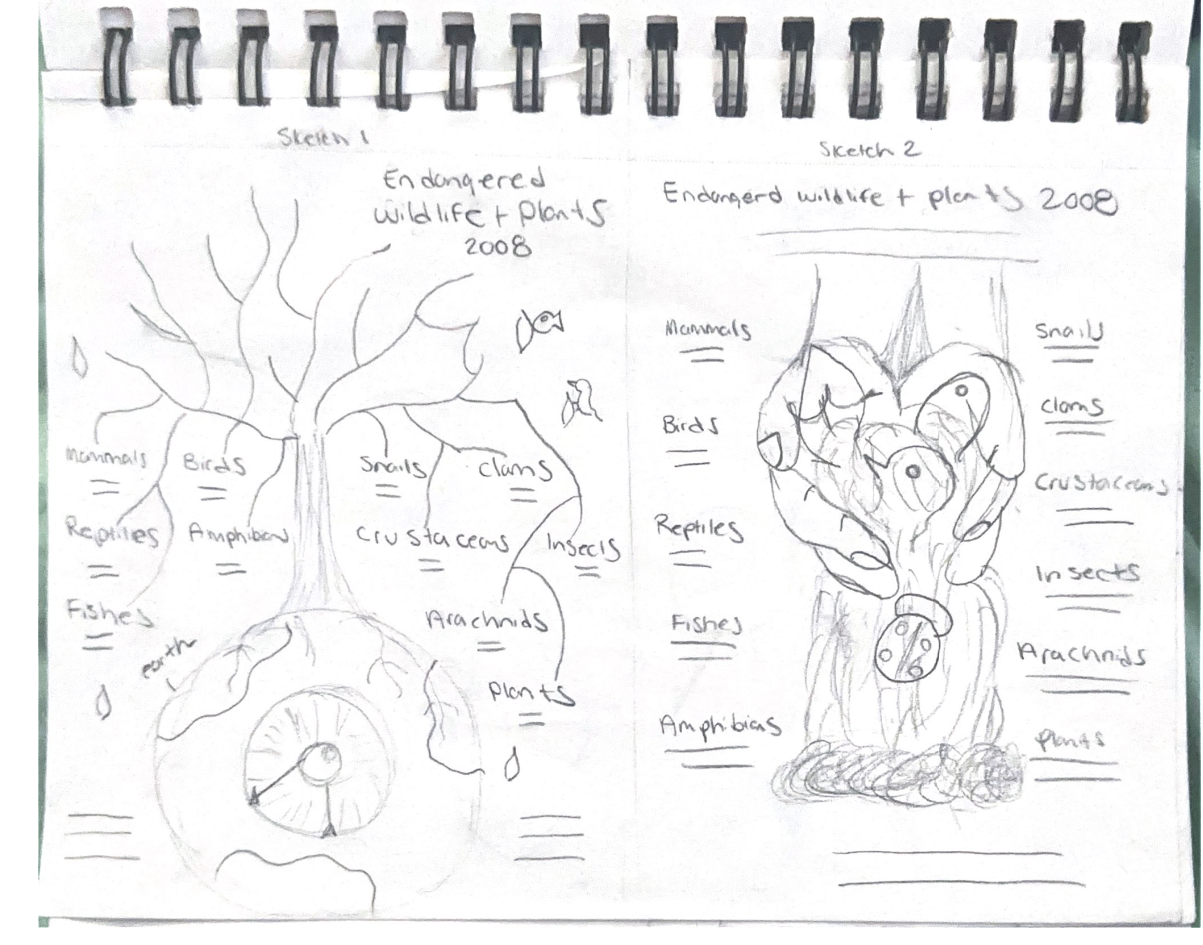 Sketch 1
Endangered
wildlife + plants
2008
Mammals
Birds
Snails
Clams
Reptiles
Amphibians
Crustaceans
Insects
Fishes
Arachnids
earth
Plants
Sketch 2
Endangerd wildlife + plants 2008
Mammals
Snails
Birds
Clams
Crustaceans
Reptiles
Insects
Fishes
Arachnids
Amphibians
Plants